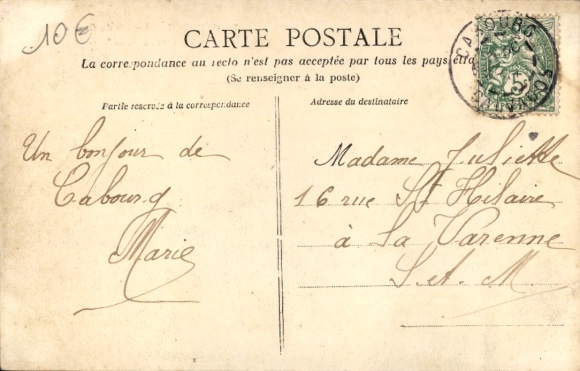 10€
CARTE POSTALE
La correspondance au recto n'est pas acceptée par tous les pays étra
(Se renseigner à la poste)
Partie reservée à la correspondance
Adresse du destinataire
CABOURG
5
Un bonjour de
Cabourg
Marie
Madame Juliette
16 rue St Hilaire
à La Varenne
S. et. M